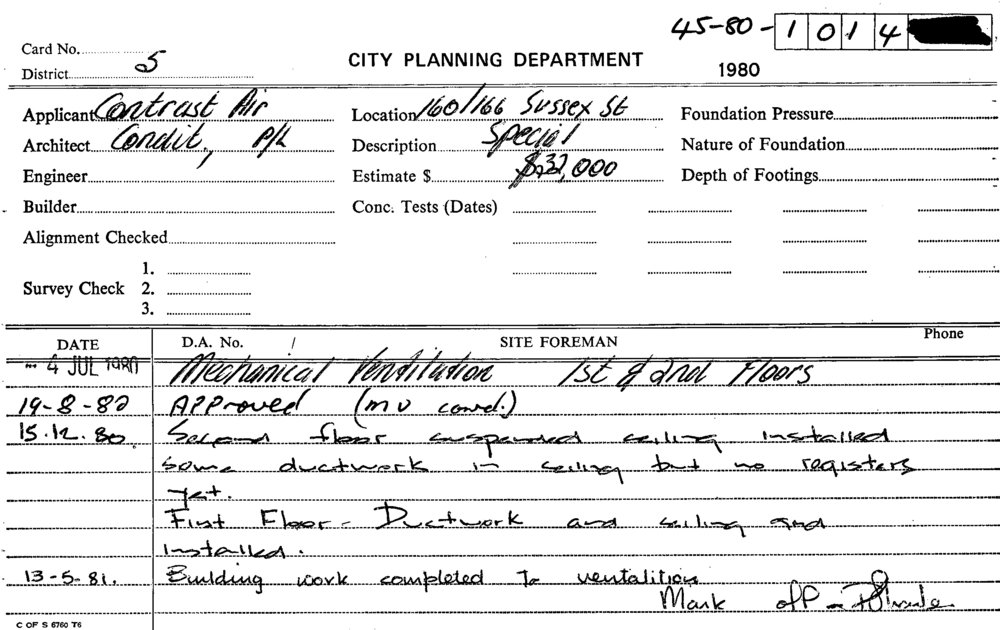 45-80-1014
Card No.
District 5
CITY PLANNING DEPARTMENT
1980
Applicant Contrast Air
Location 160/166 Sussex St
Foundation Pressure
Architect Condit., P/L
Description Special
Nature of Foundation
Engineer
Estimate $ $32,000
Depth of Footings
Builder
Conc. Tests (Dates)
Alignment Checked
Survey Check
1.
2.
3.
DATE
D.A. No. /
SITE FOREMAN
Phone
4 JUL 1980
Mechanical Ventilation 1st & 2nd Floors
19-8-80 Approved (mv cond.)
15.12.80 Second floor suspended ceiling installed
some ductwork in ceiling but no registers
yet.
First Floor - Ductwork and ceiling grid
installed.
13-5-81. Building work completed To ventalition
Mark off -
C OF S 6760 T6